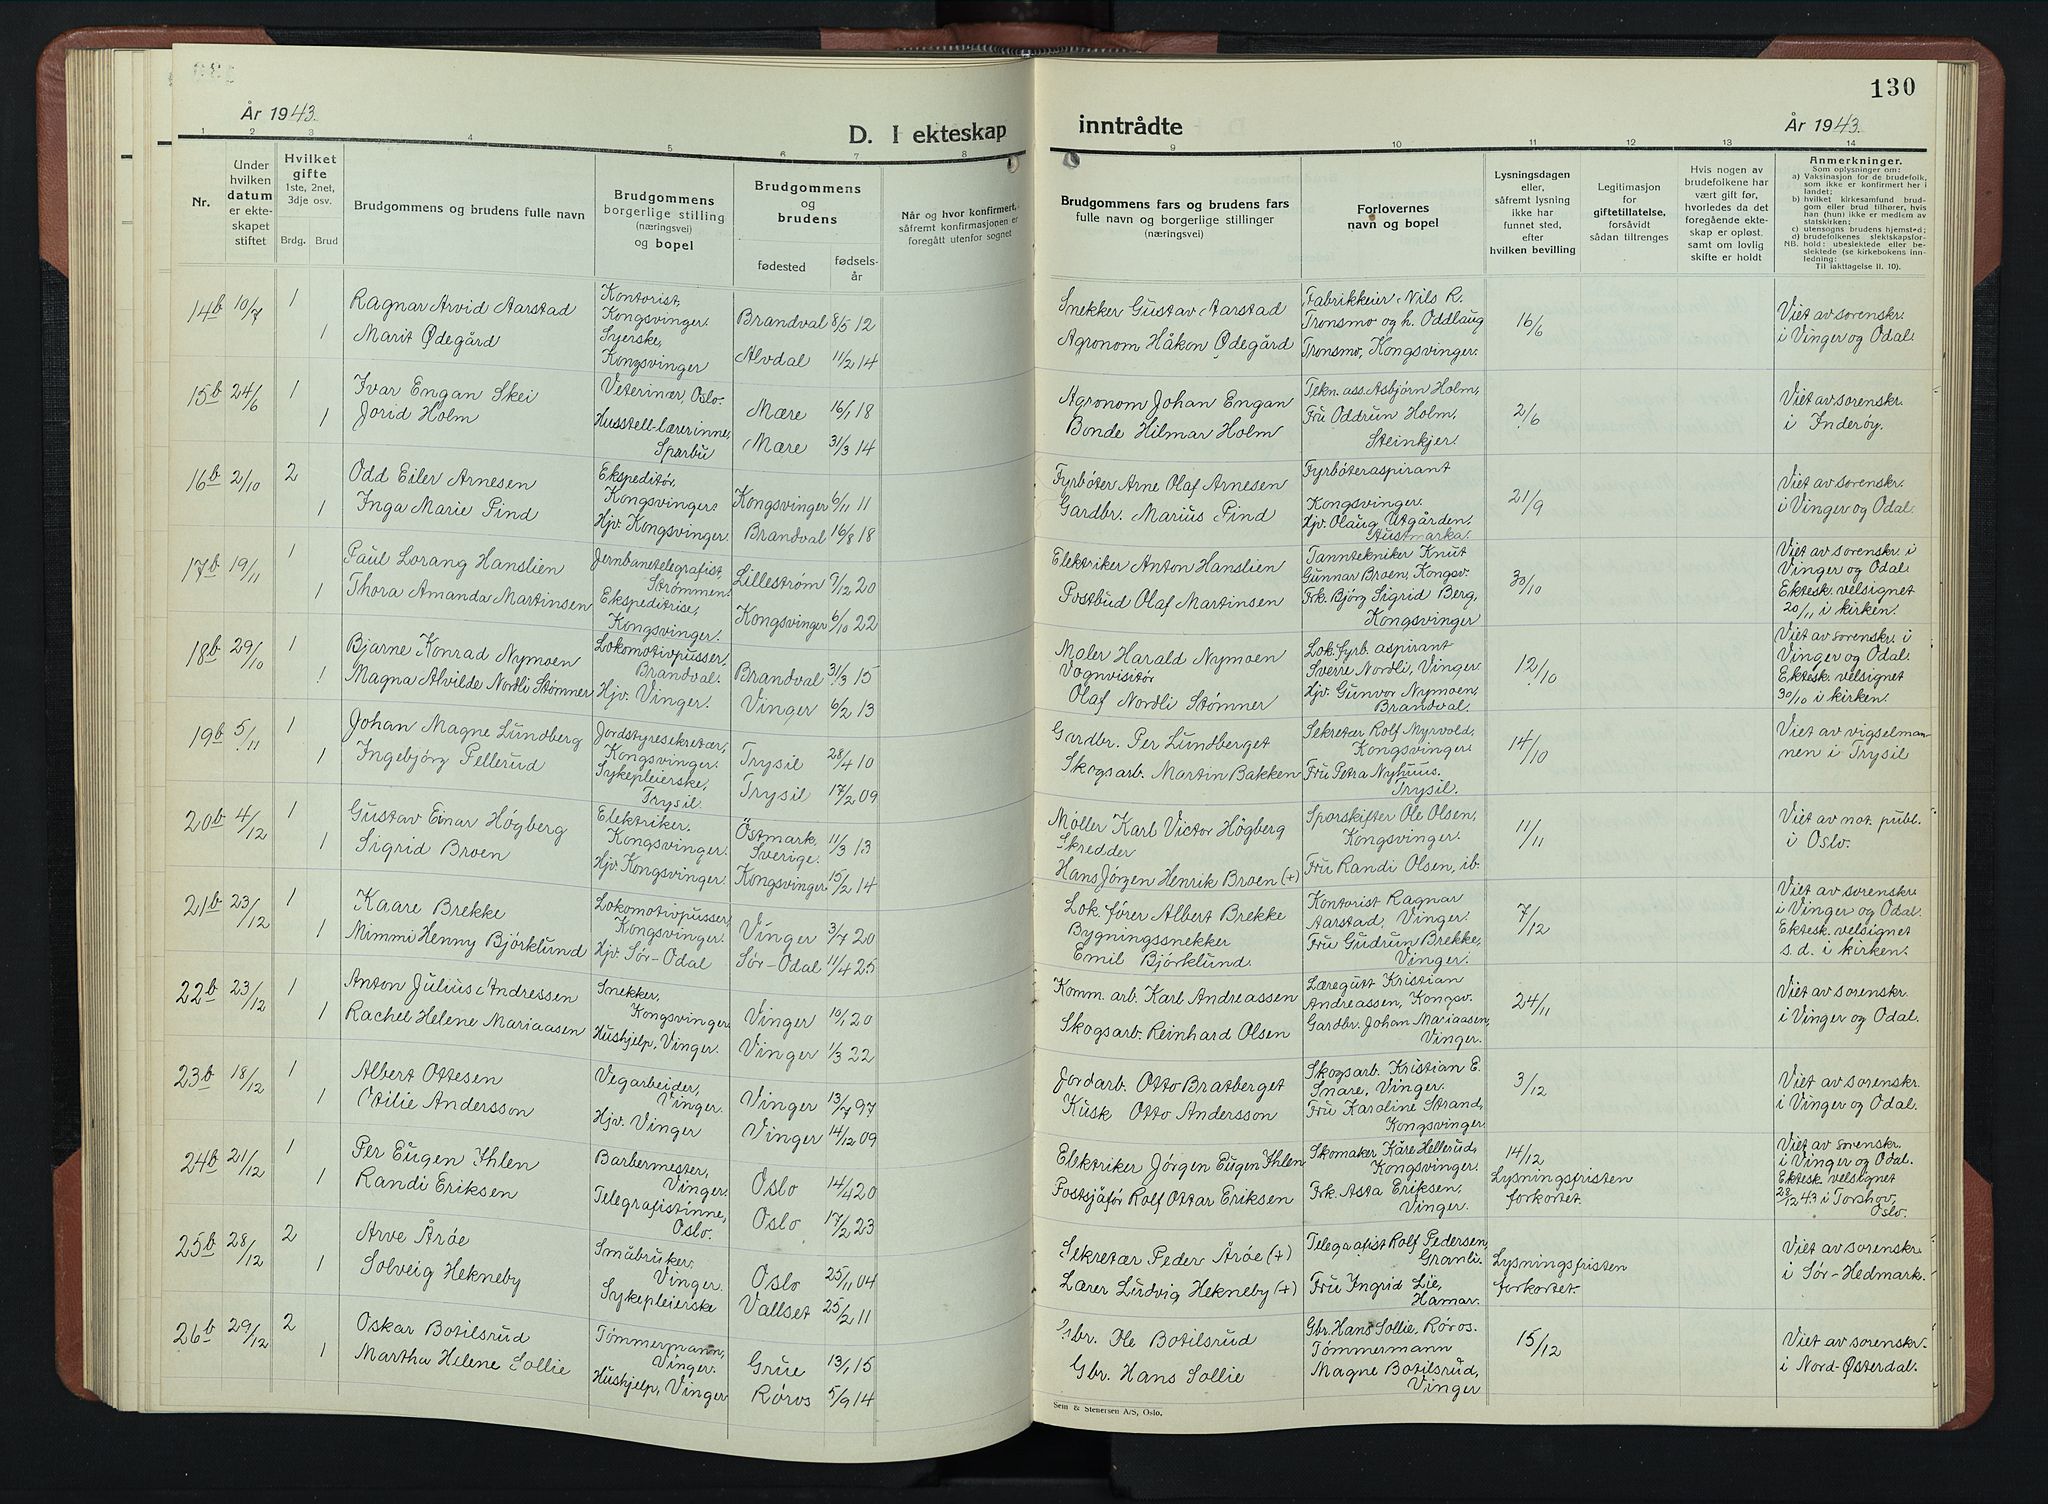 År 1943.
D. I ekteskap
inntrådte
130
År 1943.
1 2 3 4 5 6 7 8 9 10 11 12 13 14
Nr.
Under
hvilken
datum
er ekte-
skapet
stiftet
Hvilket
gifte
1ste, 2net,
3dje osv.
Brdg. Brud
Brudgommens og brudens fulle navn
Brudgommens
borgerlige stilling
(næringsvei)
og bopel
Brudgommens
og
brudens
fødested
fødsels-
år
Når og hvor konfirmert,
såfremt konfirmasjonen er
foregått utenfor sognet
Brudgommens fars og brudens fars
fulle navn og borgerlige stillinger
(næringsvei)
Forlovernes
navn og bopel
Lysningsdagen
eller,
såfremt lysning
ikke har
funnet sted,
efter
hvilken bevilling
Legitimasjon
for
giftetillatelse,
forsåvidt
sådan tiltrenges
Hvis nogen av
brudefolkene har
vært gift før,
hvorledes da det
foregående ekte-
skap er opløst,
samt om lovlig
skifte er holdt
Anmerkninger.
Som oplysninger om:
a) Vaksinasjon for de brudefolk,
som ikke er konfirmert her i
landet;
b) hvilket kirkesamfund brud-
gom eller brud tilhører, hvis
han (hun) ikke er medlem av
statskirken;
c) utensogns brudens hjemsted;
d) brudefolkenes slektskapsfor-
NB. hold: ubeslektede eller be-
slektede (se kirkebokens inn-
ledning:
Til iakttagelse II. 10).
14b 10/7 1 Ragnar Arvid Aarstad
Kontorist,
Kongsvinger.
Brandval 8/5 12
1 Marit Ødegård
Syerske,
Kongsvinger
Alvdal 11/2 14
Snekker Gustav Aarstad
Agronom Håkon Ødegård
Fabrikkeier Nils R.
Tronsmo og h. Oddlaug
Tronsmo, Kongsvinger.
16/6
Viet av sorenskr.
i Vinger og Odal.
15b 24/6 1 Ivar Engan Skei
Veterinær, Oslo.
Mære 16/1 18
1 Jorid Holm
Husstell-lærerinne,
Sparbu
Mære 31/3 14
Agronom Johan Engan
Bonde Hilmar Holm
Tekn. ass. Asbjørn Holm,
Fru Oddrun Holm,
Steinkjer
2/6
Viet av sorenskr.
i Inderøy.
16b 2/10 2 Odd Eiler Arnesen
Ekspeditør,
Kongsvinger.
Kongsvinger 6/11 11
1 Inga Marie Pind
Hjv. Kongsvinger
Brandval 16/8 18
Fyrbøter Arne Olaf Arnesen
Gardbr. Marius Pind
Fyrbøteraspirant
Kongsvinger.
Hjv. Olaug Utgården,
Austmarka.
21/9
Viet av sorenskr.
i Vinger og Odal.
17b 19/11 1 Paul Lorang Hanslien
Jernbanetelegrafist,
Strømmen.
Lillestrøm 9/12 20
1 Thora Amanda Martinsen
Ekspeditrise,
Kongsvinger.
Kongsvinger 6/10 22
Elektriker Anton Hanslien
Postbud Olaf Martinsen
Tanntekniker Knut
Gunnar Broen, Kongsv.
Frk. Bjørg Sigrid Berg,
Kongsvinger
30/10
Viet av sorenskr. i
Vinger og Odal.
Ektesk. velsignet
20/11 i kirken.
18b 29/10 1 Bjarne Konrad Nymoen
Lokomotivpusser,
Brandval.
Brandval 31/3 15
1 Magna Alvilde Nordli Stømner
Hjv. Vinger.
Vinger 6/2 13
Maler Harald Nymoen
Vognvisitør
Olaf Nordli Stømner
Lok. fyrb. aspirant
Sverre Nordli, Vinger.
Hjv. Gunvor Nymoen,
Brandval.
12/10
Viet av sorenskr. i
Vinger og Odal.
Ektesk. velsignet
30/10 i kirken.
19b 5/11 1 Johan Magne Lundberg
Jordstyresekretær,
Kongsvinger.
Trysil 28/4 10
1 Ingebjørg Pellerud
Sykepleierske,
Trysil.
Trysil 17/2 09
Gardbr. Per Lundberget
Skogsarb. Martin Bakken
Sekretær Rolf Myrvold,
Kongsvinger
Fru Petra Nyhuus.
Trysil.
14/10
Viet av vigselman-
nen i Trysil
20b 4/12 1 Gustav Einar Högberg
Elektriker.
Kongsvinger.
Östmark,
Sverige. 11/3 13
1 Sigrid Broen
Hjv. Kongsvinger.
Kongsvinger 15/2 14
Møller Karl Victor Högberg
Skredder
Hans Jörgen Henrik Broen (+)
Sporskifter Ole Olsen,
Kongsvinger.
Fru Randi Olsen, ib.
11/11
Viet av not. publ.
i Oslo.
21b 23/12 1 Kaare Brekke
Lokomotivpusser,
Kongsvinger.
Vinger 3/7 20
1 Mimmi Henny Bjørklund
Hjv. Sør-Odal
Sør-Odal 11/4 25
Lok. fører Albert Brekke
Bygningssnekker
Emil Bjørklund.
Kontorist Ragnar
Aarstad, Vinger.
Fru Gudrun Brekke,
Vinger.
7/12
Viet av sorenskr.
i Vinger og Odal.
Ektesk. velsignet
s. d. i kirken.
22b 23/12 1 Anton Julius Andressen
Snekker,
Kongsvinger.
Vinger 10/1 20
1 Rachel Helene Mariaasen
Hushjelp, Vinger.
Vinger 1/3 22
Komm. arb. Karl Andreassen
Skogsarb. Reinhard Olsen
Læregutt Kristian
Andreassen, Kongsv.
Gardbr. Johan Mariaasen,
Vinger.
24/11
Viet av sorenskr.
i Vinger og Odal.
23b 18/12 1 Albert Ottesen
Vegarbeider,
Vinger.
Vinger 13/7 97
1 Otilie Andersson
Hjv. Vinger
Vinger 14/12 09
Jordarb. Otto Bratberget
Kusk Otto Andersson
Skogsarb. Kristian E.
Snare, Vinger.
Fru Karoline Strand,
Kongsvinger.
3/12
Viet av sorenskr.
i Vinger og Odal.
24b 21/12 1 Per Eugen Ihlen
Barbermester,
Vinger.
Oslo 14/4 20
1 Randi Eriksen
Telegrafistinne,
Oslo.
Oslo 17/2 23
Elektriker Jörgen Eugen Ihlen
Postsjåfør Rolf Ottar Eriksen
Skomaker Kåre Hellerud,
Kongsvinger.
Frk. Asta Eriksen,
Vinger.
14/12
Lysningsfristen
forkortet.
Viet av sorenskr.
i Vinger og Odal.
Ektesk. velsignet
28/12 43 i Torshov,
Oslo.
25b 28/12 2 Arve Årøe
Småbruker,
Vinger.
Oslo 25/11 04
1 Solveig Hekneby
Sykepleierske
Vallset 25/2 11
Sekretær Peder Årøe (+)
Lærer Ludvig Hekneby (+)
Telegrafist Rolf Pedersen,
Granli.
Fru Ingrid Lie,
Hamar.
Lysningsfristen
forkortet.
Viet av sorenskr.
i Sør-Hedmark.
26b 29/12 2 Oskar Botilsrud
Tømmermann,
Vinger.
Grue 13/1 15
1 Martha Helene Sollie
Hushjelp, Vinger
Røros 5/9 14
Gbr. Ole Botilsrud
Gbr. Hans Sollie
Gbr. Hans Sollie, Røros.
Tømmermann
Magne Botilsrud,
Vinger
15/12
Viet av sorenskr.
i Nord-Østerdal.
Sem & Stenersen A/S, Oslo.